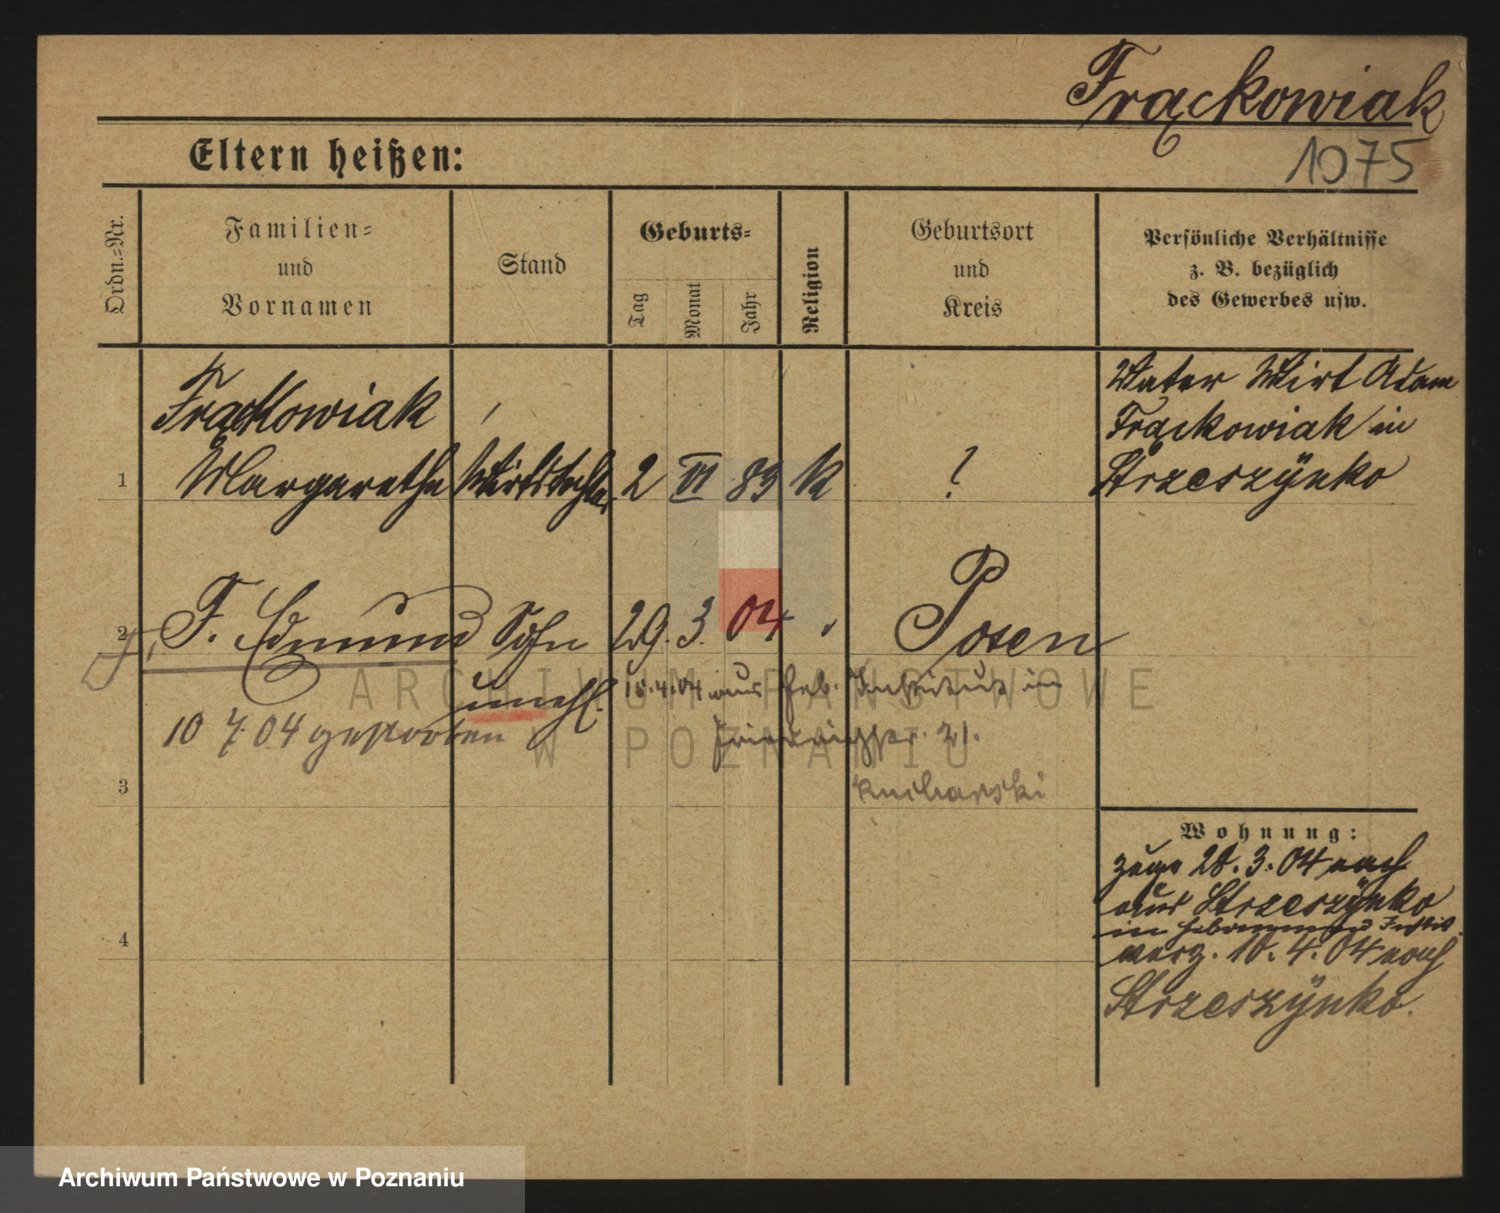 Frąckowiak
1075
Eltern heißen:
Ordn.=Nr.
Familien=
und
Vornamen
Stand
Geburts=
Tag
Monat
Jahr
Religion
Geburtsort
und
Kreis
Persönliche Verhältnisse
z. B. bezüglich
des Gewerbes usw.
Frąckowiak
1 Margarethe Wirtstochter 2 VI 83 K ?
Vater Wirt Adam
Frąckowiak in
Strzeszÿnko
2 F. Edmund Sohn 29. 3. 04 Posen
unehl.
18.4.04 aus Heb. Institut in
10 7. 04 gestorben
Friedrichstr. 21.
3
Kucharski
Wohnung:
zugz 28. 3. 04 nach
aus Strzeszÿnko
in Hebammen Instit.
verz. 18. 4. 04 nach
Strzeszÿnko.
4
ARCHIWUM PAŃSTWOWE
W POZNANIU
Archiwum Państwowe w Poznaniu